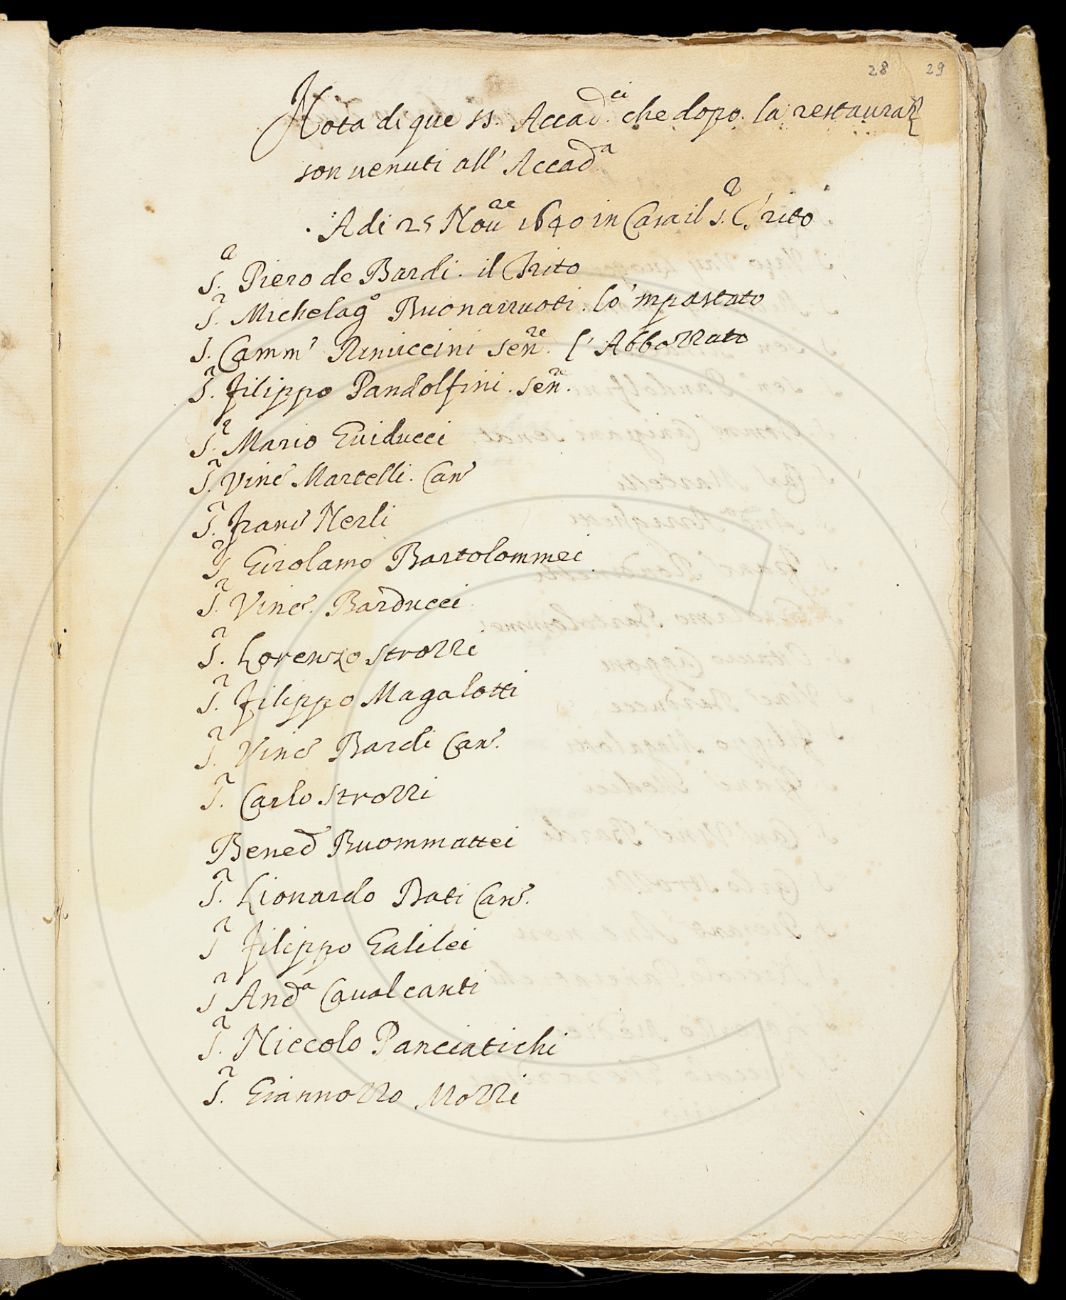 28 29
Nota di que SS. Accad.ci che dopo la restauraz.
son venuti all' Accad.a
Adi 25 Nou.re 1640 in Casa il S.r Trito
S.r Piero de Bardi. il Trito
S.r Michelag.o Buonarruoti. lo 'mpastato
S. Camm.o Rinuccini Sen.re l' Abbozzato
S.r Filippo Pandolfini. Sen.r
S.r Mario Guiducci
S.r Vinc.o Martelli. Can.o
S.r Franc.o Nerli
S.r Girolamo Bartolommei
S.r Vinc.o Barducci
S.r Lorenzo Strozzi
S.r Filippo Magalotti
S.r Vinc.o Bardi Can.o
S.r Carlo Strozzi
Bened.o Buommattei
S.r Lionardo Dati Can.o
S.r Filippo Galilei
S.r And.a Caualcanti
S.r Niccolo Panciatichi
S.r Giannozzo Mozzi